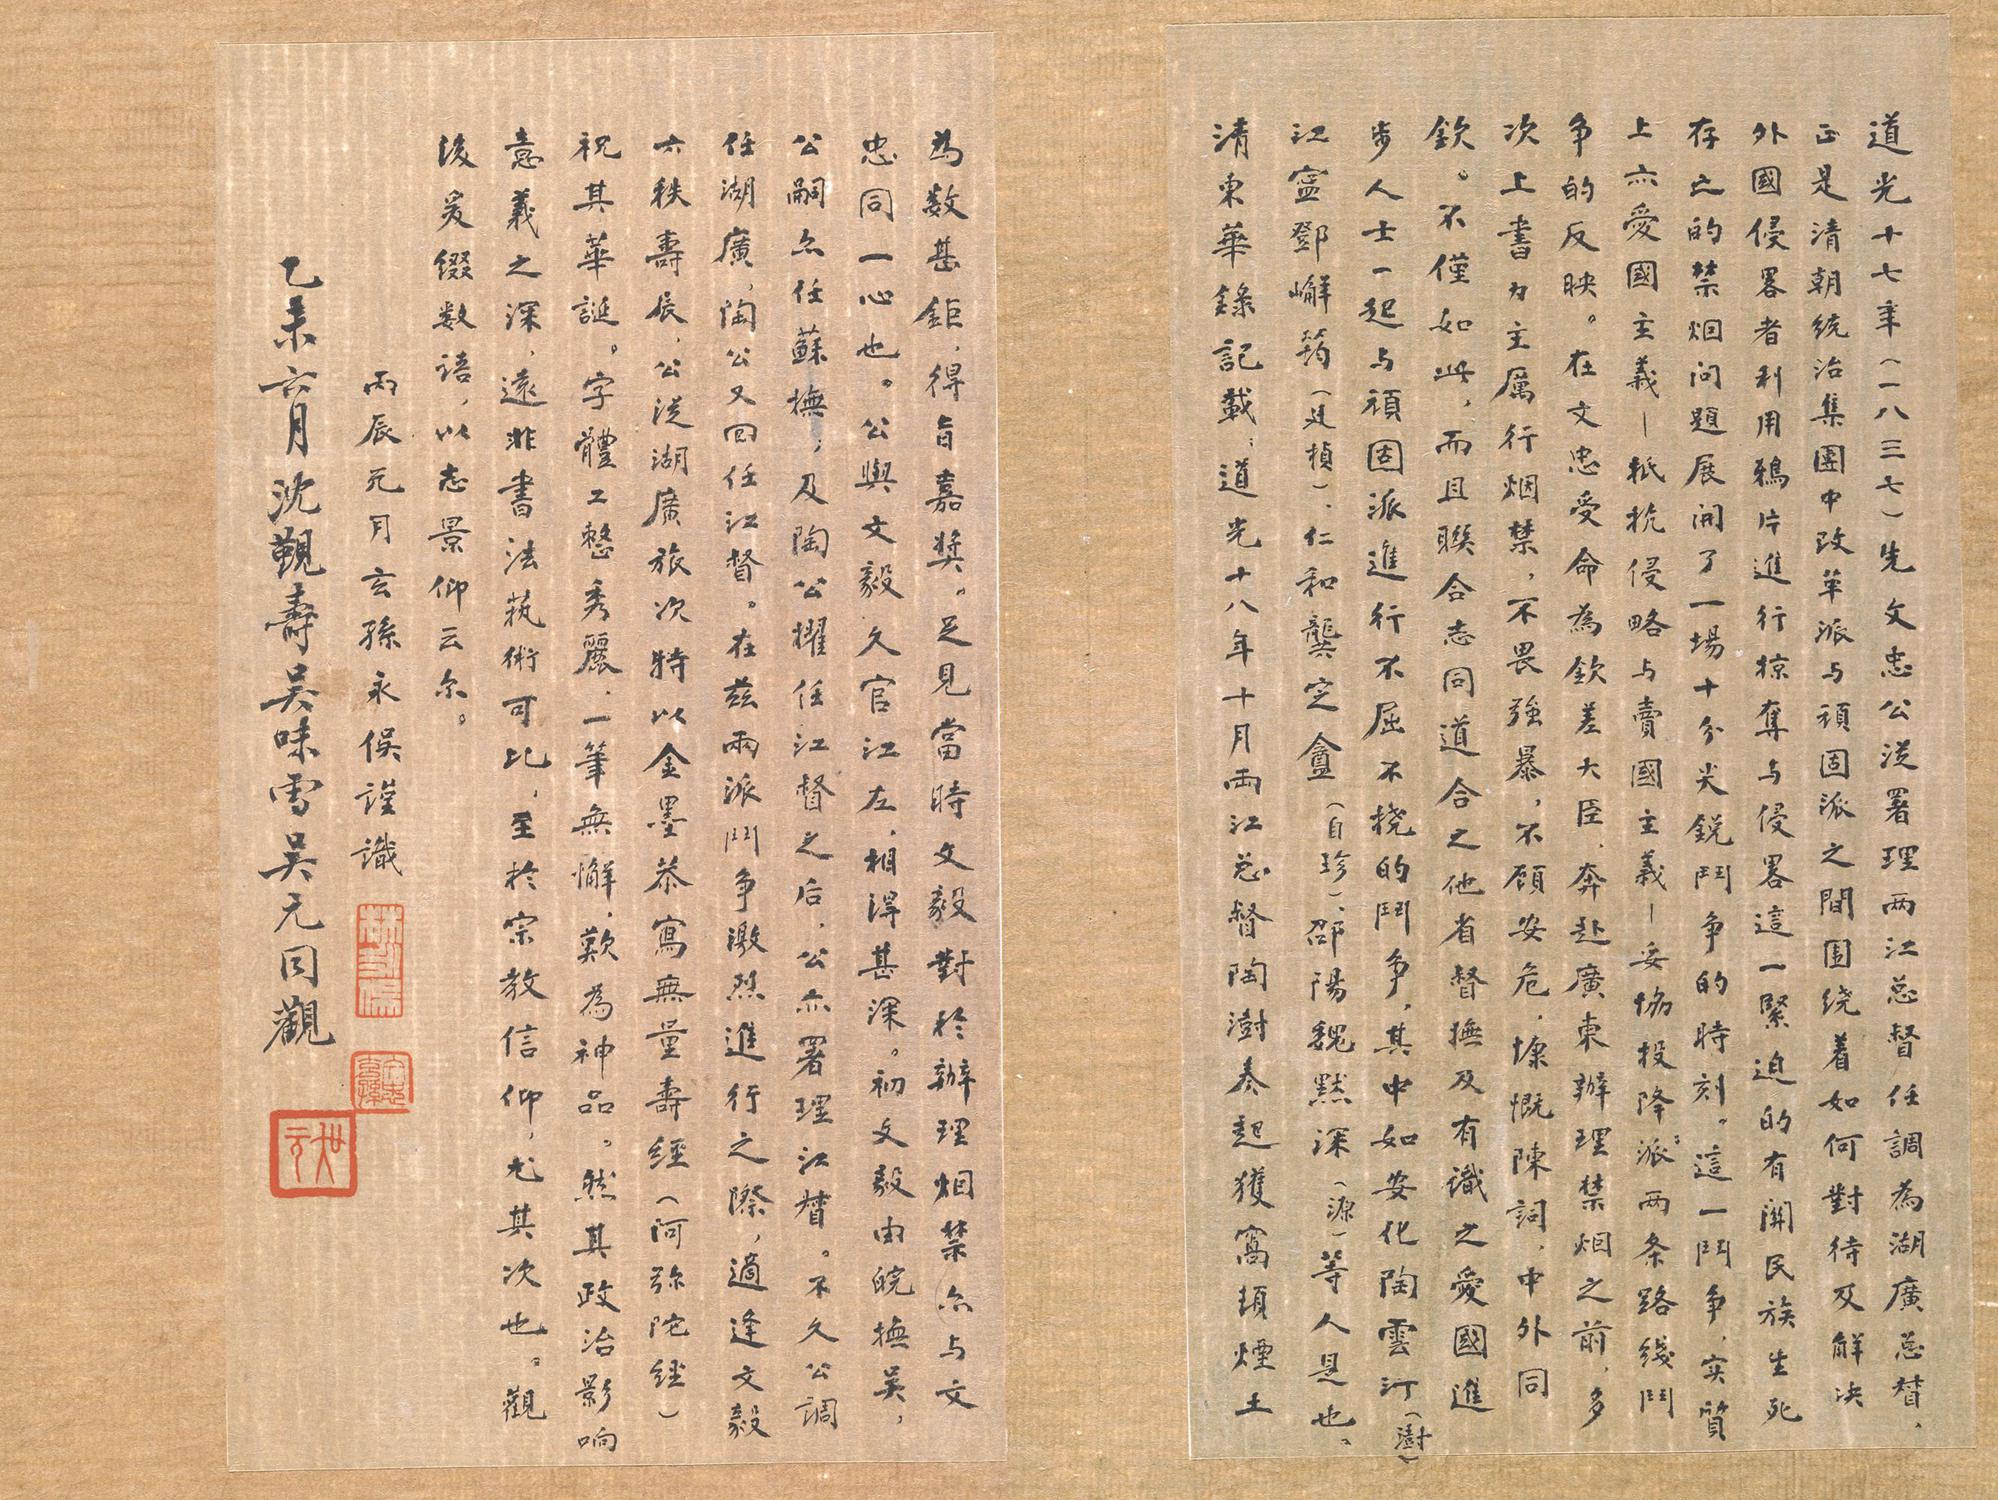 道光十七年（一八三七）先文忠公從署理两江总督任調為湖廣总督，
正是清朝统治集團中改革派与頑固派之間围绕着如何對待及解决
外國侵畧者利用鴉片進行掠奪与侵畧這一緊迫的有關民族生死
存亡的禁烟问題展開了一場十分尖銳鬥争的時刻。這一鬥争，实質
上亦愛國主義—抵抗侵略与賣國主義—妥协投降派两条路线鬥
争的反映。在文忠受命為欽差大臣，奔赴廣東辦理禁烟之前，多
次上書力主厲行烟禁，不畏強暴，不顾安危，慷慨陳詞，中外同
欽。不僅如此，而且联合志同道合之他省督撫及有識之愛國進
步人士一起与頑固派進行不屈不挠的鬥争，其中如安化陶雲汀（澍）
江寧鄧嶰筠（廷楨）、仁和龔定盦（自珍）、邵陽魏默深（源）等人是也。
清東華錄記載：道光十八年十月两江总督陶澍奏起獲窩頓煙土
為数甚鉅，得旨嘉獎。足見當時文毅對於辦理烟禁亦与文
忠同一心也。公與文毅久官江左，相得甚深。初文毅由皖撫吳，
公嗣亦任蘇撫；及陶公擢任江督之后，公亦署理江督。不久公調
任湖廣，陶公又回任江督。在兹两派鬥争激烈進行之際，適逢文毅
六秩壽辰，公從湖廣旅次特以金墨恭寫無量壽經（阿弥陀經）
祝其華誕。字體工整秀麗，一筆無懈，歎為神品。然其政治影响
意義之深，遠非書法藝術可比，至於宗教信仰，尤其次也。觀
後爰缀数語，以志景仰云尔。
丙辰元月玄孫永俁謹識
乙未六月沈觀壽吳味雪吳元同觀